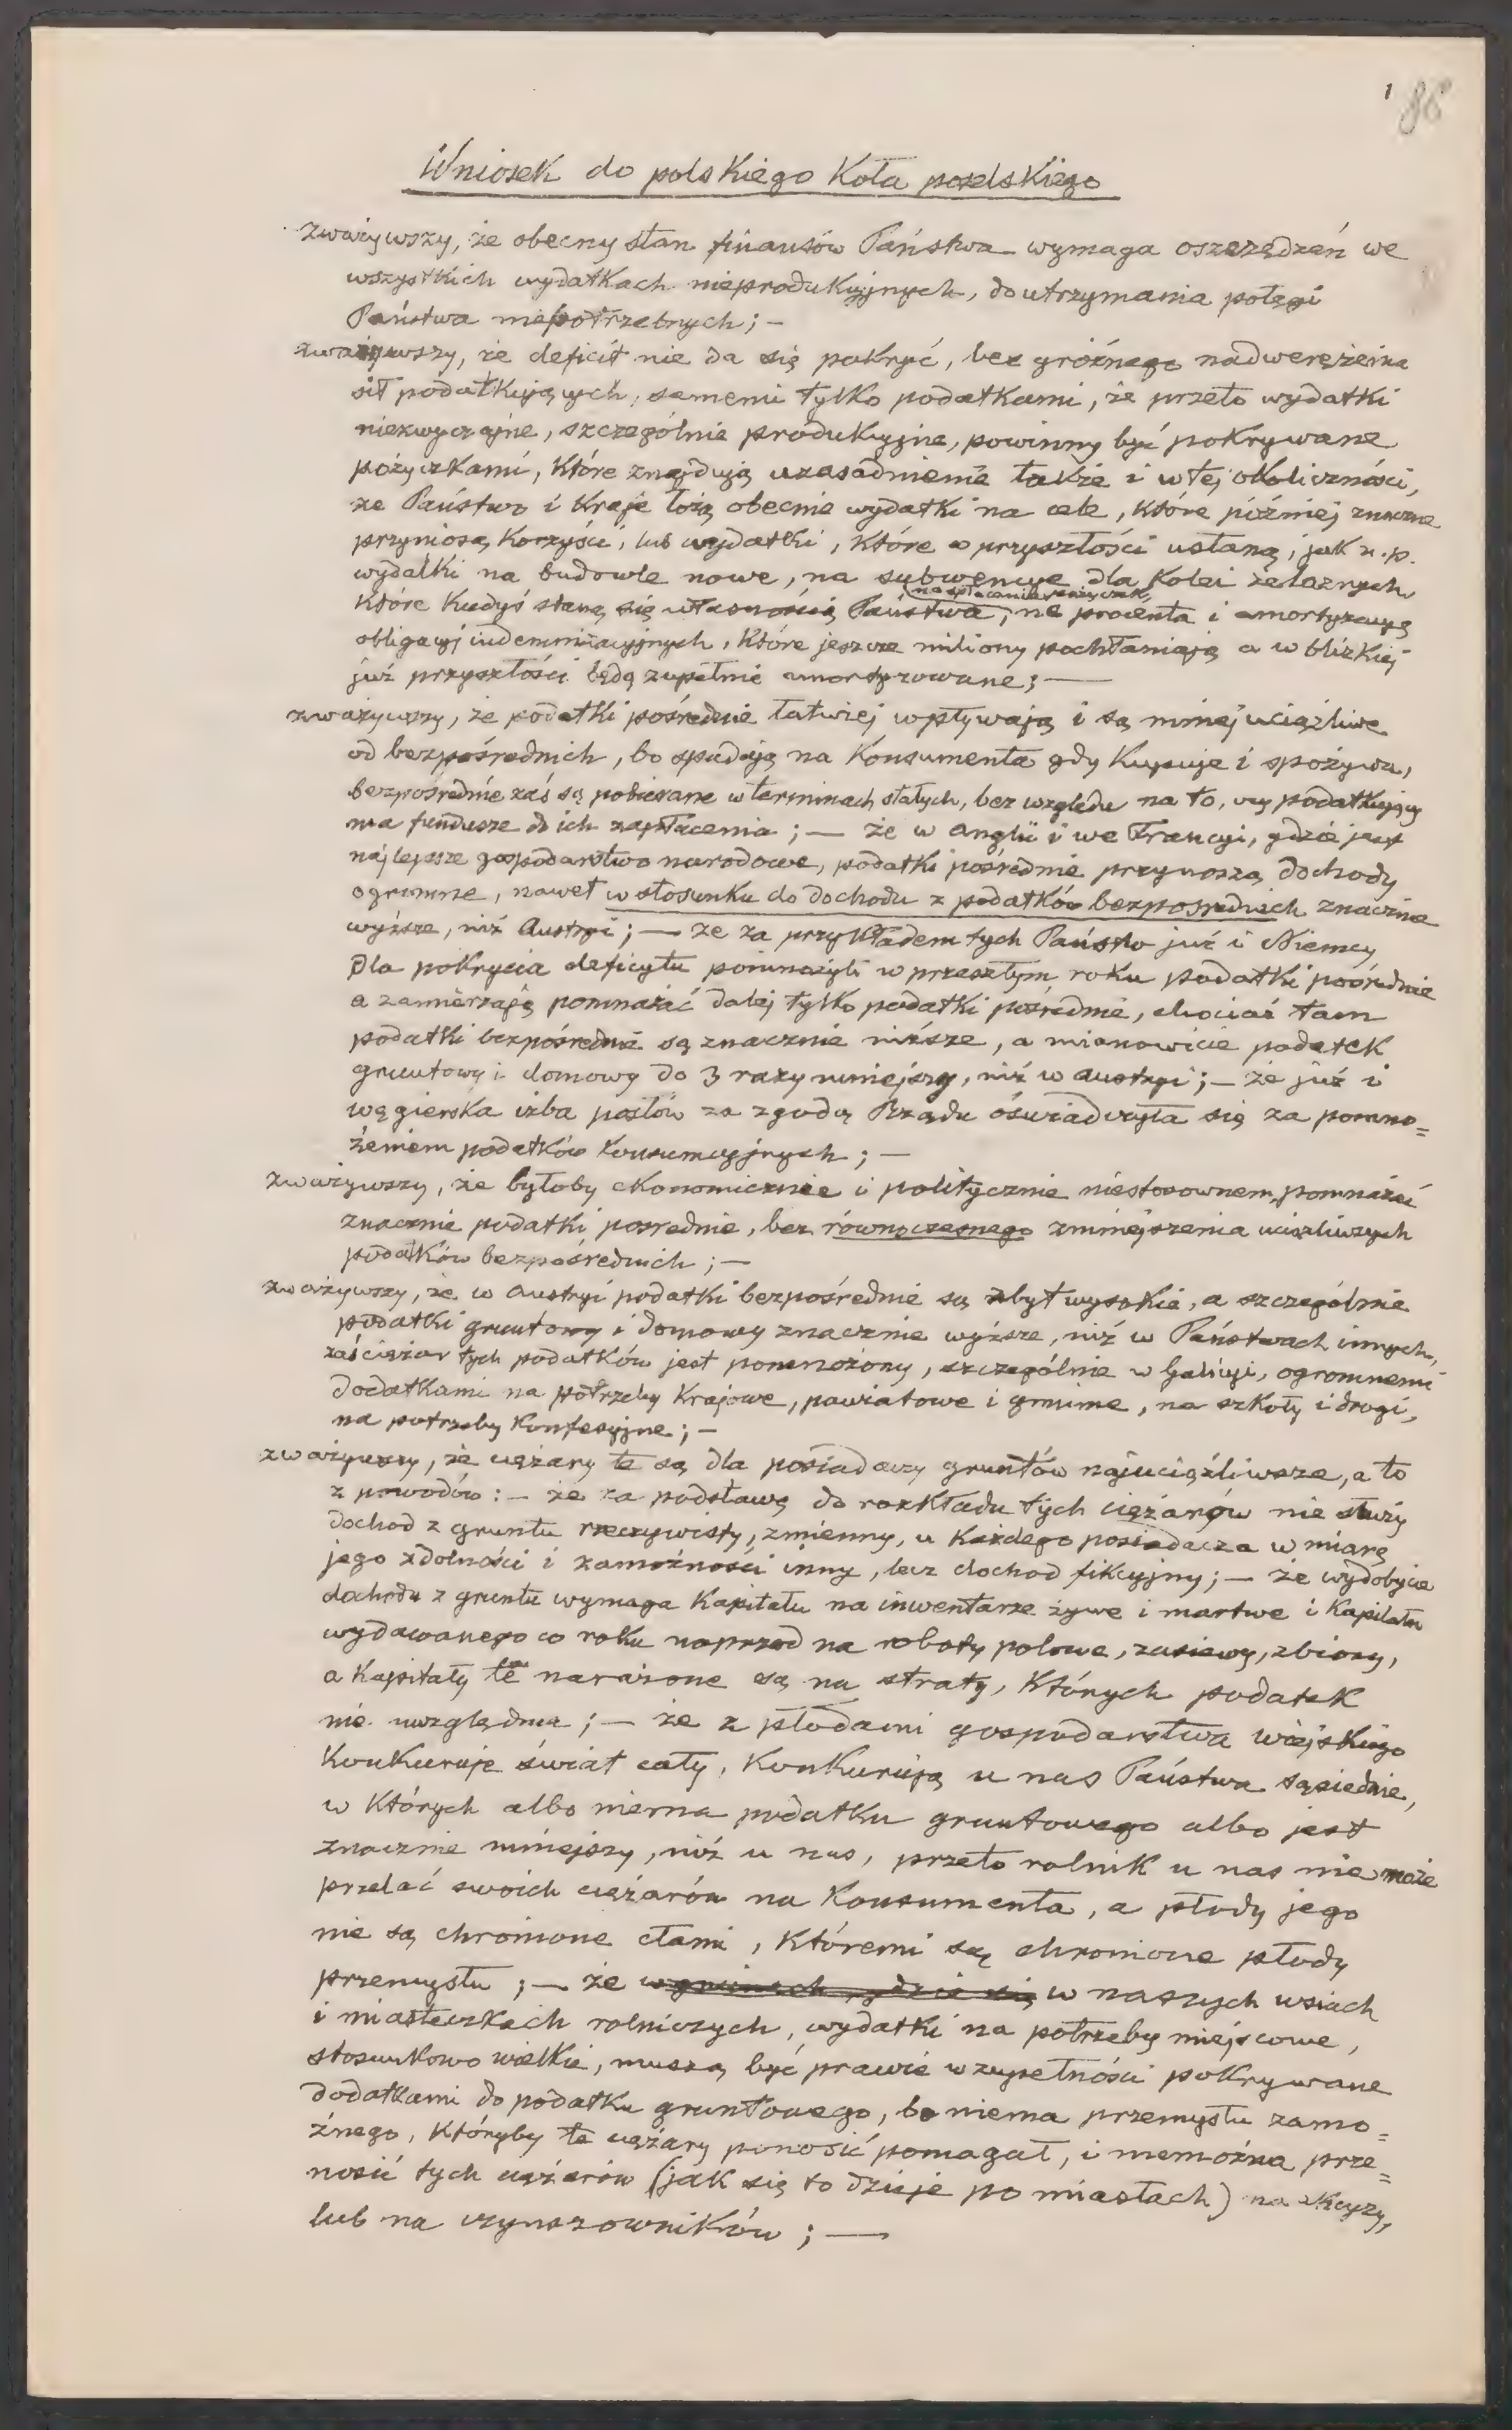 1 86
Wniosek do polskiego Koła poselskiego
zważywszy, że obecny stan finansów Państwa wymaga oszczędzeń we
wszystkich wydatkach nieprodukcyjnych, do utrzymania potęgi
Państwa niepotrzebnych; –
zważywszy, że deficit nie da się pokryć, bez groźnego nadwerężenia
sił podatkujących, samemi tylko podatkami, że przeto wydatki
niezwyczajne, szczególnie produkcyjne, powinny być pokrywane
pożyczkami, które znajdują uzasadnienie także i w tej okoliczności,
że Państwo i Kraje łożą obecnie wydatki na cele, które później znaczne
przyniosą korzyści, lub wydatki, które w przyszłości ustaną, jak n.p.
wydatki na budowle nowe, na subwencye dla Kolei żelaznych,
na spłacanie pożyczek,
które kiedyś staną się własnością Państwa, na procenta i amortyzacyę
obligacyj indemnizacyjnych, które jeszcze miliony pochłaniają a w blizkiej
już przyszłości będą zupełnie amortyzowane; —
zważywszy, że podatki pośrednie łatwiej wpływają i są mniej uciążliwe
od bezpośrednich, bo spadają na Konsumenta gdy kupuje i spożywa,
bezpośrednie zaś są pobierane w terminach stałych, bez względu na to, czy podatkujący
ma fundusze do ich zapłacenia; — że w Anglii i we Francyi, gdzie jest
najlepsze gospodarstwo narodowe, podatki pośrednie przynoszą dochody
ogromne, nawet w stosunku do dochodu z podatków bezpośrednich znacznie
wyższe, niż Austryi; — że za przykładem tych Państw już i Niemcy
dla pokrycia deficytu pomnożyli w przeszłym roku podatki pośrednie
a zamierzają pomnażać dalej tylko podatki pośrednie, chociaż tam
podatki bezpośrednie są znacznie niższe, a mianowicie podatek
gruntowy i domowy do 3 razy mniejszy, niż w Austryi; — że już i
węgierska izba posłów za zgodą Rządu oświadczyła się za pomno=
żeniem podatków konsumcyjnych; —
zważywszy, że byłoby ekonomicznie i politycznie niestosownem, pomnażać
znacznie podatki pośrednie, bez równoczesnego zmniejszenia uciążliwszych
podatków bezpośrednich; —
zważywszy, że w Austryi podatki bezpośrednie są zbyt wysokie, a szczególnie
podatki gruntowy i domowy znacznie wyższe, niż w Państwach innych,
zaś ciężar tych podatków jest pomnożony, szczególnie w Galicyi, ogromnemi
dodatkami na potrzeby Krajowe, powiatowe i gminne, na szkoły i drogi,
na potrzeby Konfesyjne; –
zważywszy, że ciężary te są dla posiadaczy gruntów najuciążliwsze, a to
z powodów: – że za podstawę do rozkładu tych ciężarów nie służy
dochod z gruntu rzeczywisty, zmienny, u Każdego posiadacza w miarę
jego zdolności i zamożności inny, lecz dochod fikcyjny; — że wydobycie
dochodu z gruntu wymaga Kapitału na inwentarze żywe i martwe i Kapitału
wydawanego co roku naprzod na roboty polowe, zasiewy, zbiory,
a Kapitały te narażone są na straty, Których podatek
nie uwzględnia; — że z płodami gospodarstwa wiejskiego
Konkuruje świat cały, Konkurują u nas Państwa sąsiednie,
w Których albo niema podatku gruntowego albo jest
znacznie mniejszy, niż u nas, przeto rolnik u nas nie może
przelać swoich ciężarów na Konsumenta, a płody jego
nie są chronione cłami, Któremi są chronione płody
przemysłu; — że w gminach, gdzie się w naszych wsiach
i miasteczkach rolniczych, wydatki na potrzeby miejscowe,
stosunkowo wielkie, muszą być prawie w zupełności pokrywane
dodatkami do podatku gruntowego, bo niema przemysłu zamo=
żnego, Któryby te ciężary ponosić pomagał, i niemożna prze=
nosić tych ciężarów (jak się to dzieje po miastach) na akcyzy,
lub na czynszowników; —